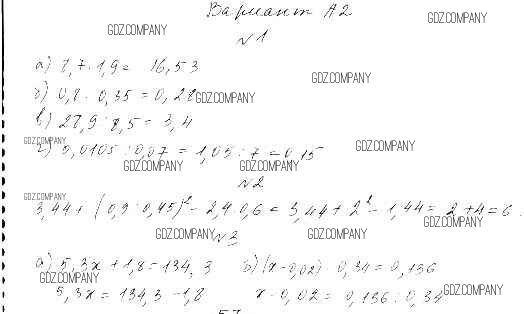 Вариант А2
GDZ.COMPANY
GDZ.COMPANY
№1
а) 8,7 · 1,9 = 16,53
GDZ.COMPANY
б) 0,8 · 0,35 = 0,28
GDZ.COMPANY
в) 28,9 : 8,5 = 3,4
GDZ.COMPANY
GDZ.COMPANY
г) 0,0105 : 0,07 = 1,05 : 7 = 0,15
GDZ.COMPANY
GDZ.COMPANY
№2
GDZ.COMPANY
3,44 + (0,9 : 0,45)² - 2,4 · 0,6 = 3,44 + 2² - 1,44 = 2 + 4 = 6.
GDZ.COMPANY
GDZ.COMPANY
GDZ.COMPANY
№3
а) 5,3x + 1,8 = 134,3 б) (x - 0,02) · 0,34 = 0,136
GDZ.COMPANY
5,3x = 134,3 - 1,8 x - 0,02 = 0,136 : 0,34
GDZ.COMPANY